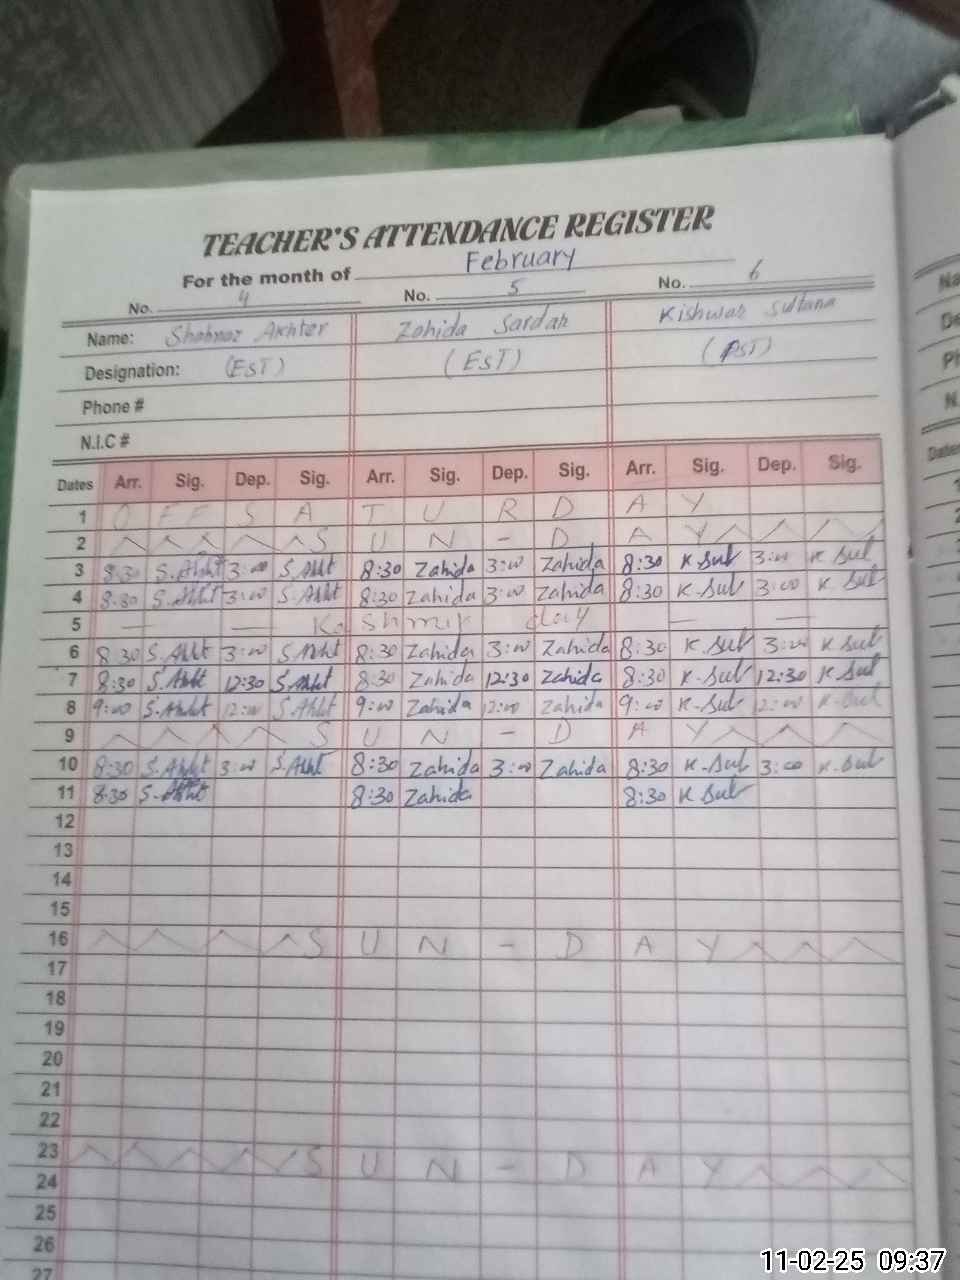 TEACHER'S ATTENDANCE REGISTER
For the month of February
No. 4 No. 5 No. 6
Name: Shahnaz Akhter Zahida Sardar Kishwar Sultana
Designation: (EST) (EST) (PST)
Phone #
N.I.C #
Dates Arr. Sig. Dep. Sig. Arr. Sig. Dep. Sig. Arr. Sig. Dep. Sig.
1 OFF SATURDAY
2 SUN-DAY
3 8:30 S.Akht 3:00 S.Akht 8:30 Zahida 3:00 Zahida 8:30 K Sul 3:00 K Sul
4 8:30 S.Akht 3:00 S.Akht 8:30 Zahida 3:00 Zahida 8:30 K.Sul 3:00 K.Sul
5 — — Kashmir day — —
6 8:30 S.Akht 3:00 S.Akht 8:30 Zahida 3:00 Zahida 8:30 K.Sul 3:00 K.Sul
7 8:30 S.Akht 12:30 S.Akht 8:30 Zahida 12:30 Zahida 8:30 K-Sul 12:30 K Sul
8 9:00 S.Akht 12:00 S.Akht 9:00 Zahida 12:00 Zahida 9:00 K-Sul 12:00 K-Sul
9 SUN-DAY
10 8:30 S.Akht 3:00 S.Akht 8:30 Zahida 3:00 Zahida 8:30 K-Sul 3:00 K.Sul
11 8:30 S.Akht 8:30 Zahida 8:30 K Sul
12
13
14
15
16 SUN-DAY
17
18
19
20
21
22
23 SUN-DAY
24
25
26
27
11-02-25 09:37